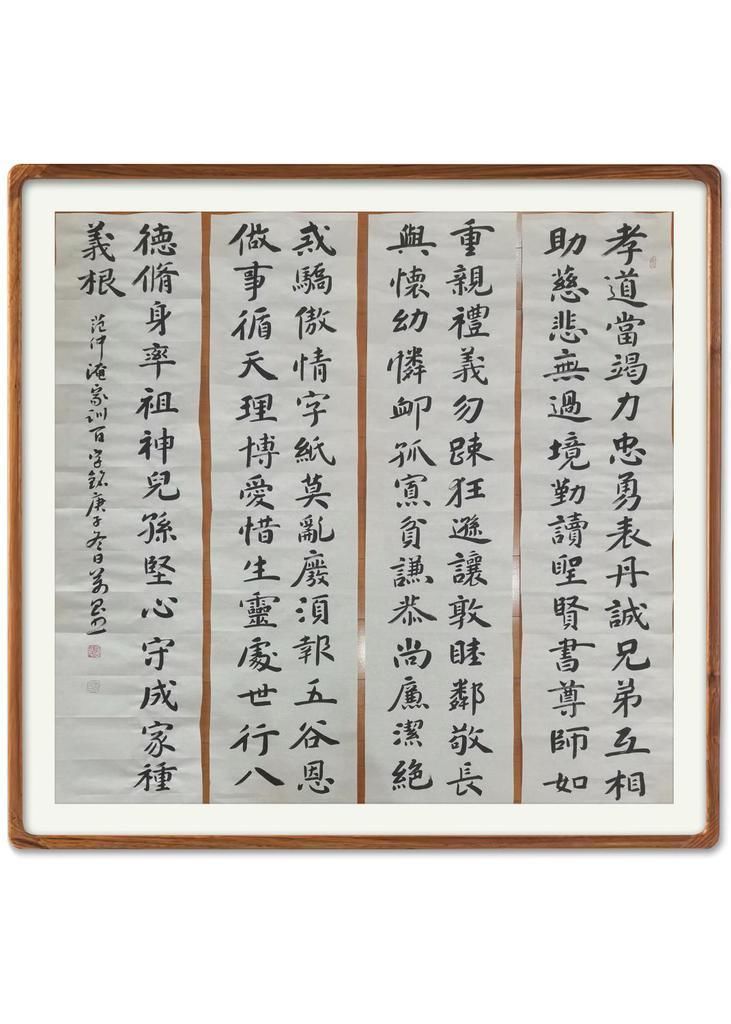 孝道當竭力忠勇表丹誠兄弟互相
助慈悲無過境勤讀聖賢書尊師如
重親禮義勿踈狂遜讓敦睦鄰敬長
與懷幼憐卹孤寡貧謙恭尚廉潔絕
戒驕傲惰字紙莫亂廢須報五谷恩
做事循天理博愛惜生靈處世行八
德脩身率祖神兒孫堅心守成家種
義根
范仲淹家訓百字銘庚子冬日